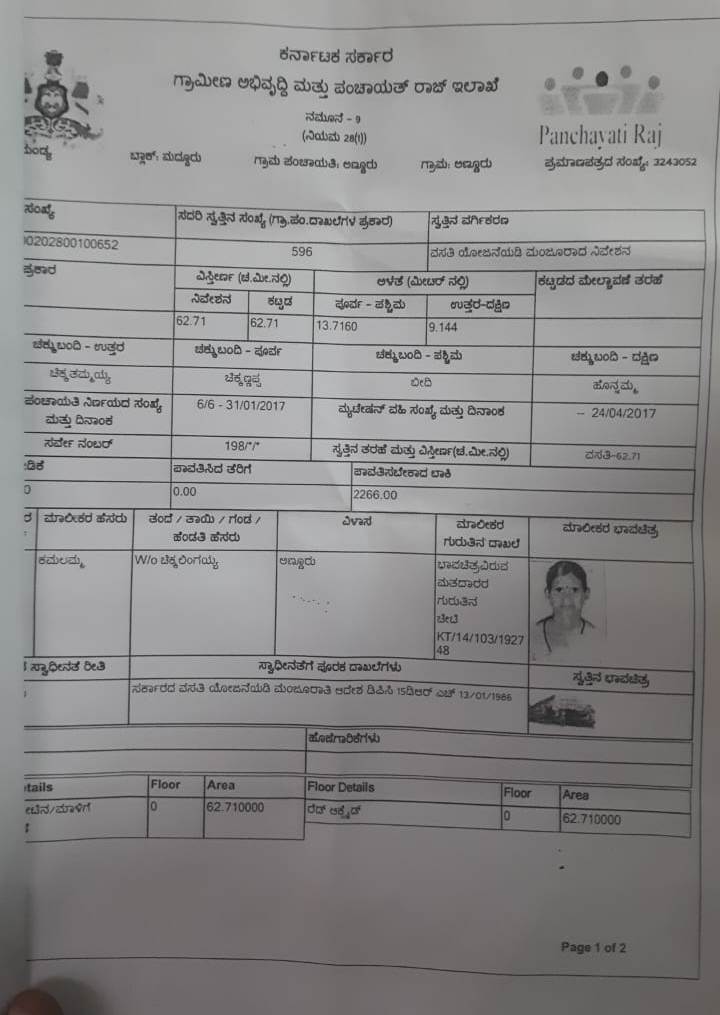 ಕರ್ನಾಟಕ ಸರ್ಕಾರ
ಗ್ರಾಮೀಣ ಅಭಿವೃದ್ಧಿ ಮತ್ತು ಪಂಚಾಯತ್ ರಾಜ್ ಇಲಾಖೆ
ನಮೂನೆ - 9
(ನಿಯಮ 28(1))
Panchayati Raj
ಬ್ಲಾಕ್: ಮದ್ದೂರು ಗ್ರಾಮ ಪಂಚಾಯತಿ: ಅಣ್ಣೂರು ಗ್ರಾಮ: ಅಣ್ಣೂರು ಪ್ರಮಾಣಪತ್ರದ ಸಂಖ್ಯೆ: 3243052
ಸಂಖ್ಯೆ ಸದರಿ ಸ್ವತ್ತಿನ ಸಂಖ್ಯೆ (ಗ್ರಾ.ಪಂ.ದಾಖಲೆಗಳ ಪ್ರಕಾರ) ಸ್ವತ್ತಿನ ವರ್ಗೀಕರಣ
00202800100652 596 ವಸತಿ ಯೋಜನೆಯಡಿ ಮಂಜೂರಾದ ನಿವೇಶನ
ಪ್ರಕಾರ ವಿಸ್ತೀರ್ಣ (ಚ.ಮೀ.ನಲ್ಲಿ) ಅಳತೆ (ಮೀಟರ್ ನಲ್ಲಿ) ಕಟ್ಟಡದ ಮೇಲ್ಛಾವಣಿ ತರಹೆ
ನಿವೇಶನ ಕಟ್ಟಡ ಪೂರ್ವ - ಪಶ್ಚಿಮ ಉತ್ತರ-ದಕ್ಷಿಣ
62.71 62.71 13.7160 9.144
ಚಕ್ಕುಬಂದಿ - ಉತ್ತರ ಚಕ್ಕುಬಂದಿ - ಪೂರ್ವ ಚಕ್ಕುಬಂದಿ - ಪಶ್ಚಿಮ ಚಕ್ಕುಬಂದಿ - ದಕ್ಷಿಣ
ಚಿಕ್ಕತಮ್ಮಯ್ಯ ಚಿಕ್ಕಣ್ಣಪ್ಪ ಬೀದಿ ಹೊನ್ನಮ್ಮ
ಪಂಚಾಯತಿ ನಿರ್ಣಯದ ಸಂಖ್ಯೆ 6/6 - 31/01/2017 ಮ್ಯುಟೇಷನ್ ವಹಿ ಸಂಖ್ಯೆ ಮತ್ತು ದಿನಾಂಕ -- 24/04/2017
ಮತ್ತು ದಿನಾಂಕ
ಸರ್ವೇ ನಂಬರ್ 198/*/* ಸ್ವತ್ತಿನ ತರಹೆ ಮತ್ತು ವಿಸ್ತೀರ್ಣ(ಚ.ಮೀ.ನಲ್ಲಿ) ವಸತಿ-62.71
ಪಾವತಿಸಿದ ತೆರಿಗೆ ಪಾವತಿಸಬೇಕಾದ ಬಾಕಿ
0 0.00 2266.00
ಮಾಲೀಕರ ಹೆಸರು ತಂದೆ / ತಾಯಿ / ಗಂಡ / ವಿಳಾಸ ಮಾಲೀಕರ ಮಾಲೀಕರ ಭಾವಚಿತ್ರ
ಹೆಂಡತಿ ಹೆಸರು ಗುರುತಿನ ದಾಖಲೆ
ಕಮಲಮ್ಮ W/o ಚಿಕ್ಕಲಿಂಗಯ್ಯ ಅಣ್ಣೂರು ಭಾವಚಿತ್ರವಿರುವ
ಮತದಾರರ
ಗುರುತಿನ
ಚೀಟಿ
KT/14/103/1927
48
ಸ್ವಾಧೀನತೆ ರೀತಿ ಸ್ವಾಧೀನತೆಗೆ ಪೂರಕ ದಾಖಲೆಗಳು ಸ್ವತ್ತಿನ ಭಾವಚಿತ್ರ
ಸರ್ಕಾರದ ವಸತಿ ಯೋಜನೆಯಡಿ ಮಂಜೂರಾತಿ ಆದೇಶ ಡಿಪಿಸಿ 15ಡಿಆರ್ ಎಚ್ 13/01/1986
ಹೊಣೆಗಾರಿಕೆಗಳು
tails Floor Area Floor Details Floor Area
0 62.710000 ರೆಡ್ ಆಕ್ಸೈಡ್ 0 62.710000
Page 1 of 2